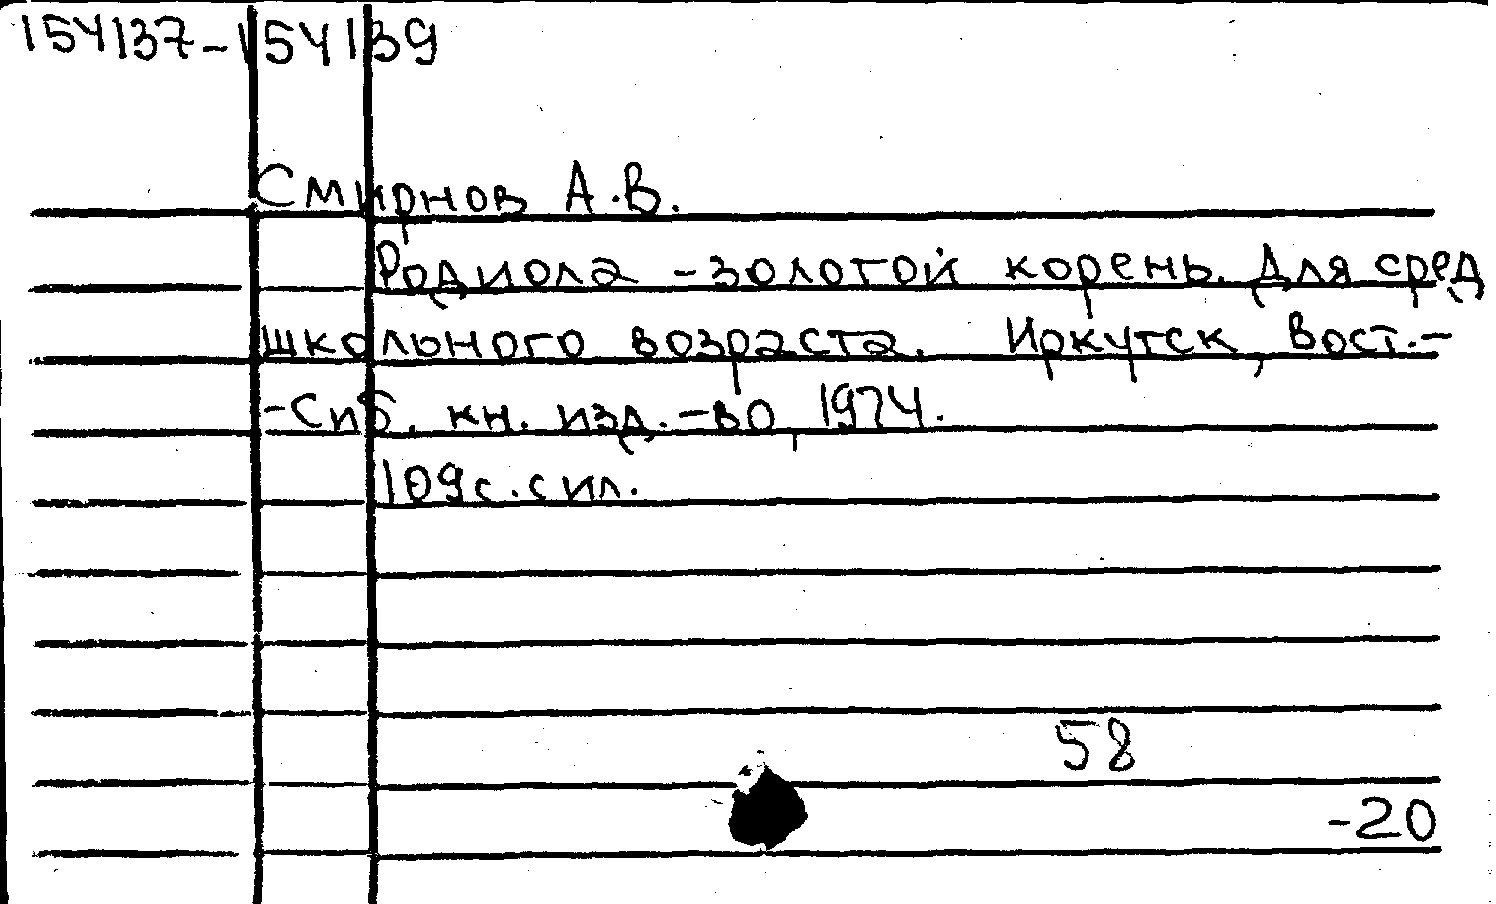 154137-154139
Смирнов А.В.
Родиола - золотой корень. Для сред
школьного возраста. Иркутск, Вост.-
-Сиб. кн. изд.-во, 1974.
109с. с ил.
58
-20